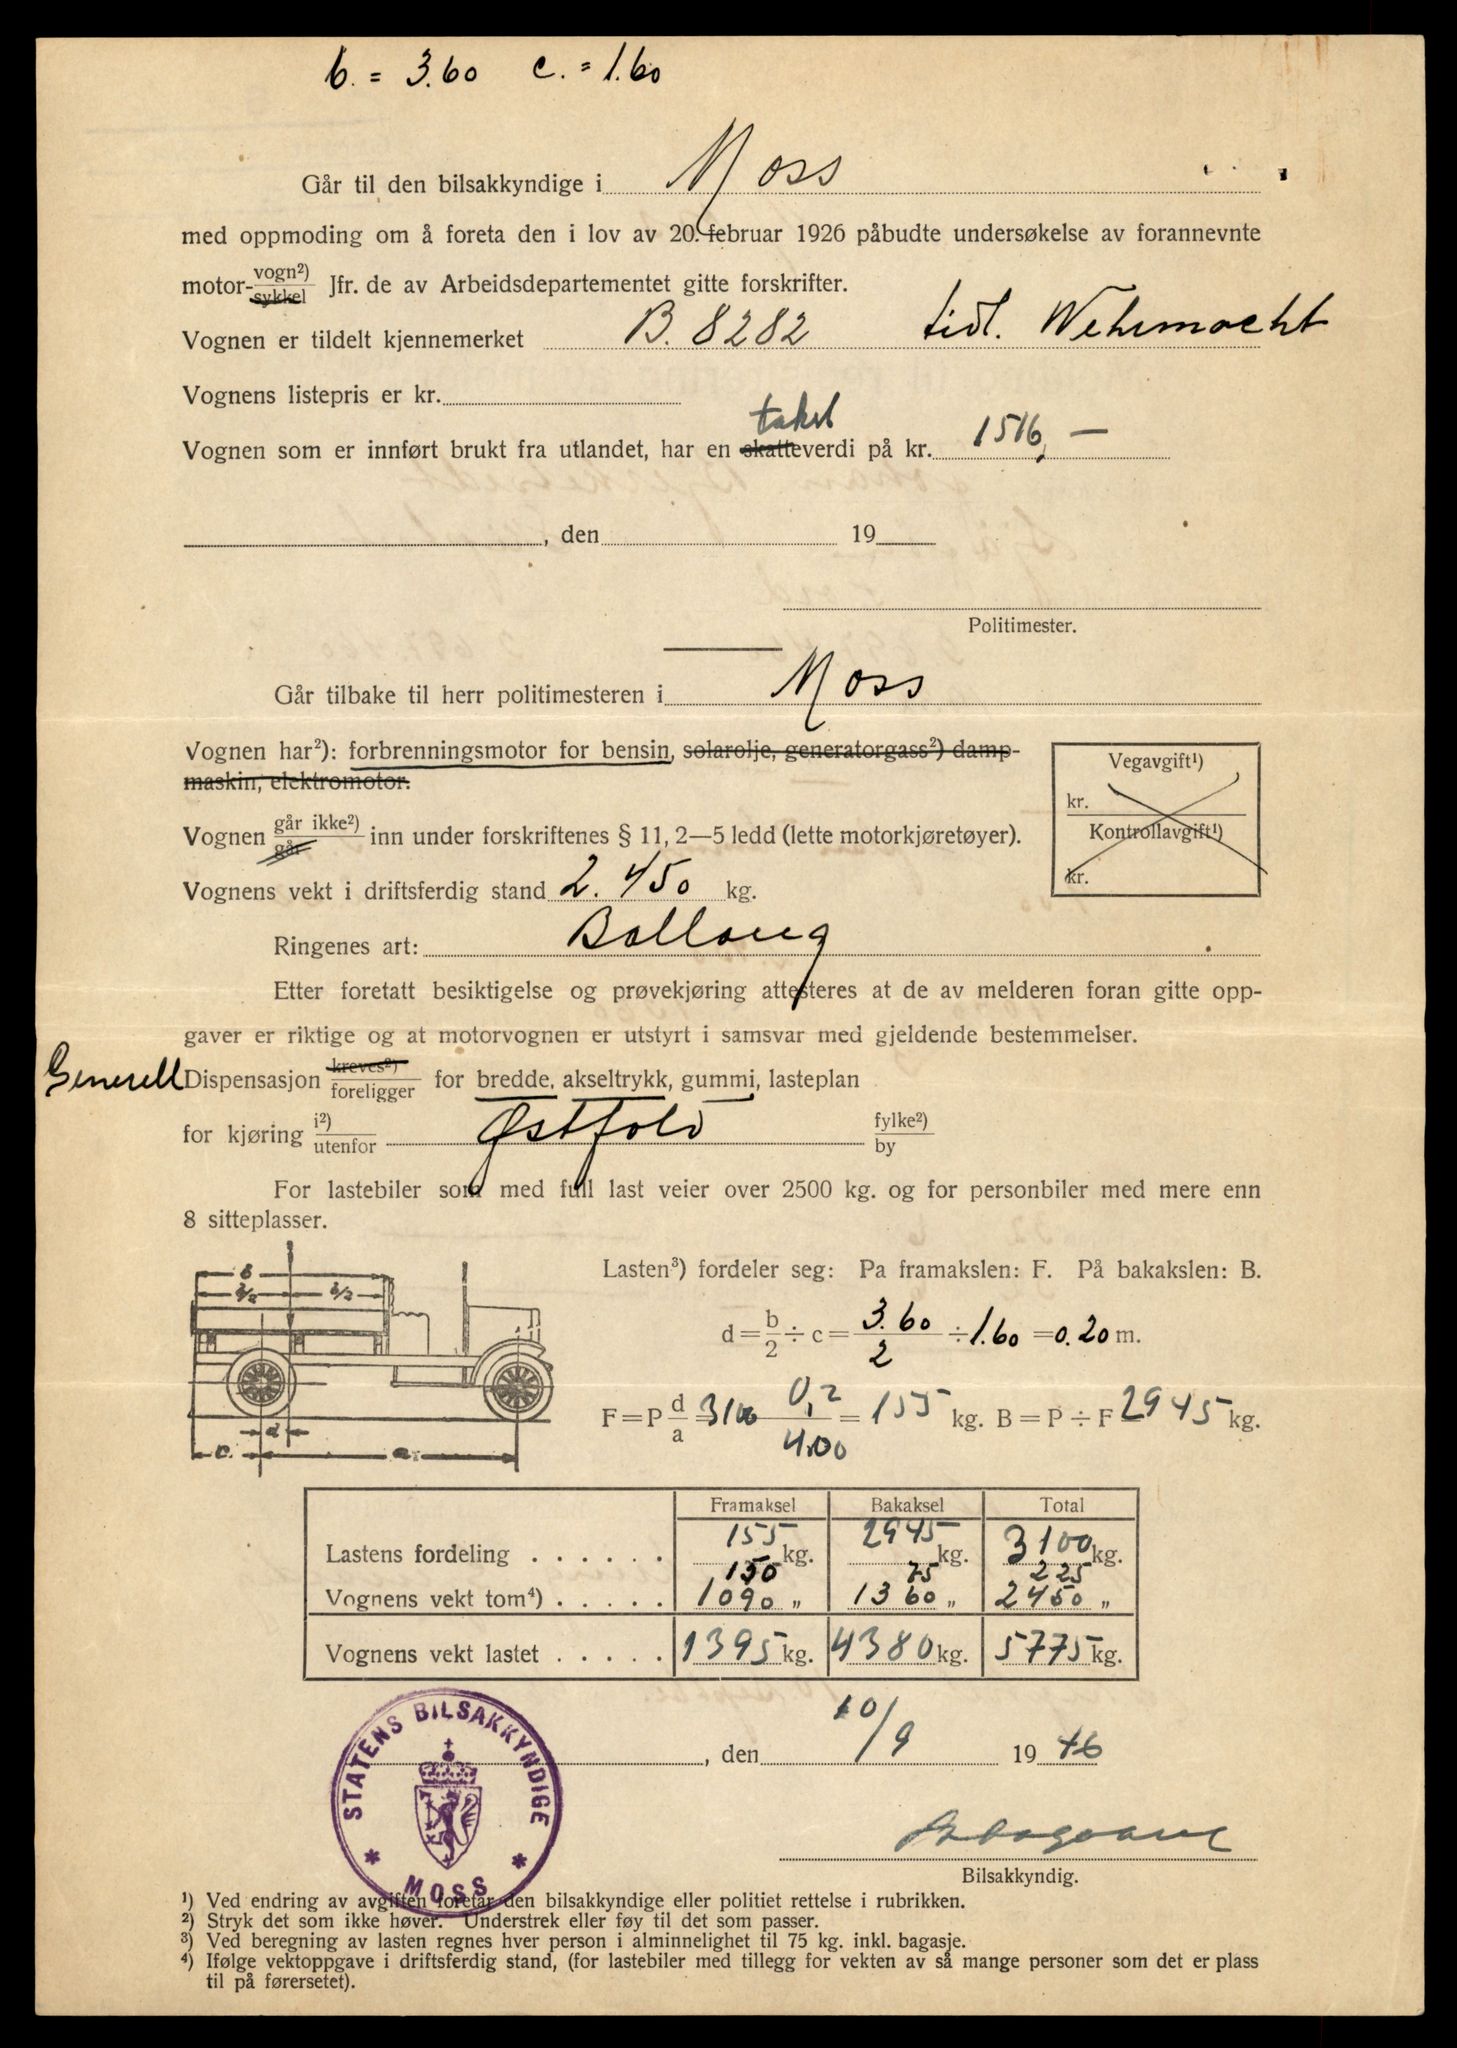 b. = 3.60 c. = 1.60
Går til den bilsakkyndige i Moss
med oppmoding om å foreta den i lov av 20. februar 1926 påbudte undersøkelse av forannevnte
motor- vogn²) sykkel Jfr. de av Arbeidsdepartementet gitte forskrifter.
Vognen er tildelt kjennemerket B. 8282 tidl. Wehrmacht
Vognens listepris er kr.
takst
Vognen som er innført brukt fra utlandet, har en skatteverdi på kr. 1516,—
, den 19
Politimester.
Går tilbake til herr politimesteren i Moss
Vognen har²): forbrenningsmotor for bensin, solarolje, generatorgass²) damp-
maskin, elektromotor.
Vegavgift¹)
kr.
Kontrollavgift¹)
kr.
Vognen går ikke²) går inn under forskriftenes § 11, 2—5 ledd (lette motorkjøretøyer).
Vognens vekt i driftsferdig stand 2.450 kg.
Ringenes art: Ballong
Etter foretatt besiktigelse og prøvekjøring attesteres at de av melderen foran gitte opp-
gaver er riktige og at motorvognen er utstyrt i samsvar med gjeldende bestemmelser.
Generell Dispensasjon kreves²) foreligger for bredde, akseltrykk, gummi, lasteplan
for kjøring i²) utenfor Østfold fylke²) by
For lastebiler som med full last veier over 2500 kg. og for personbiler med mere enn
8 sitteplasser.
Lasten³) fordeler seg: Pa framakslen: F. På bakakslen: B.
d = b/2 ÷ c = 3.60/2 ÷ 1.60 = 0.20 m.
F = P d/a = 3100 0,2/4.00 = 155 kg. B = P ÷ F 2945 kg.
b
b/2 b/2
d
c. a.
Framaksel Bakaksel Total
Lastens fordeling . . . . . . 155 kg. 2945 kg. 3100 kg.
150 75 225
Vognens vekt tom⁴) . . . . . 1090 „ 1360 „ 2450 „
Vognens vekt lastet . . . . . 1395 kg. 4380 kg. 5775 kg.
, den 10/9 19 46
STATENS BILSAKKYNDIGE
* MOSS *
Bilsakkyndig.
¹) Ved endring av avgiften foretar den bilsakkyndige eller politiet rettelse i rubrikken.
²) Stryk det som ikke høver. Understrek eller føy til det som passer.
³) Ved beregning av lasten regnes hver person i alminnelighet til 75 kg. inkl. bagasje.
⁴) Ifølge vektoppgave i driftsferdig stand, (for lastebiler med tillegg for vekten av så mange personer som det er plass
til på førersetet).